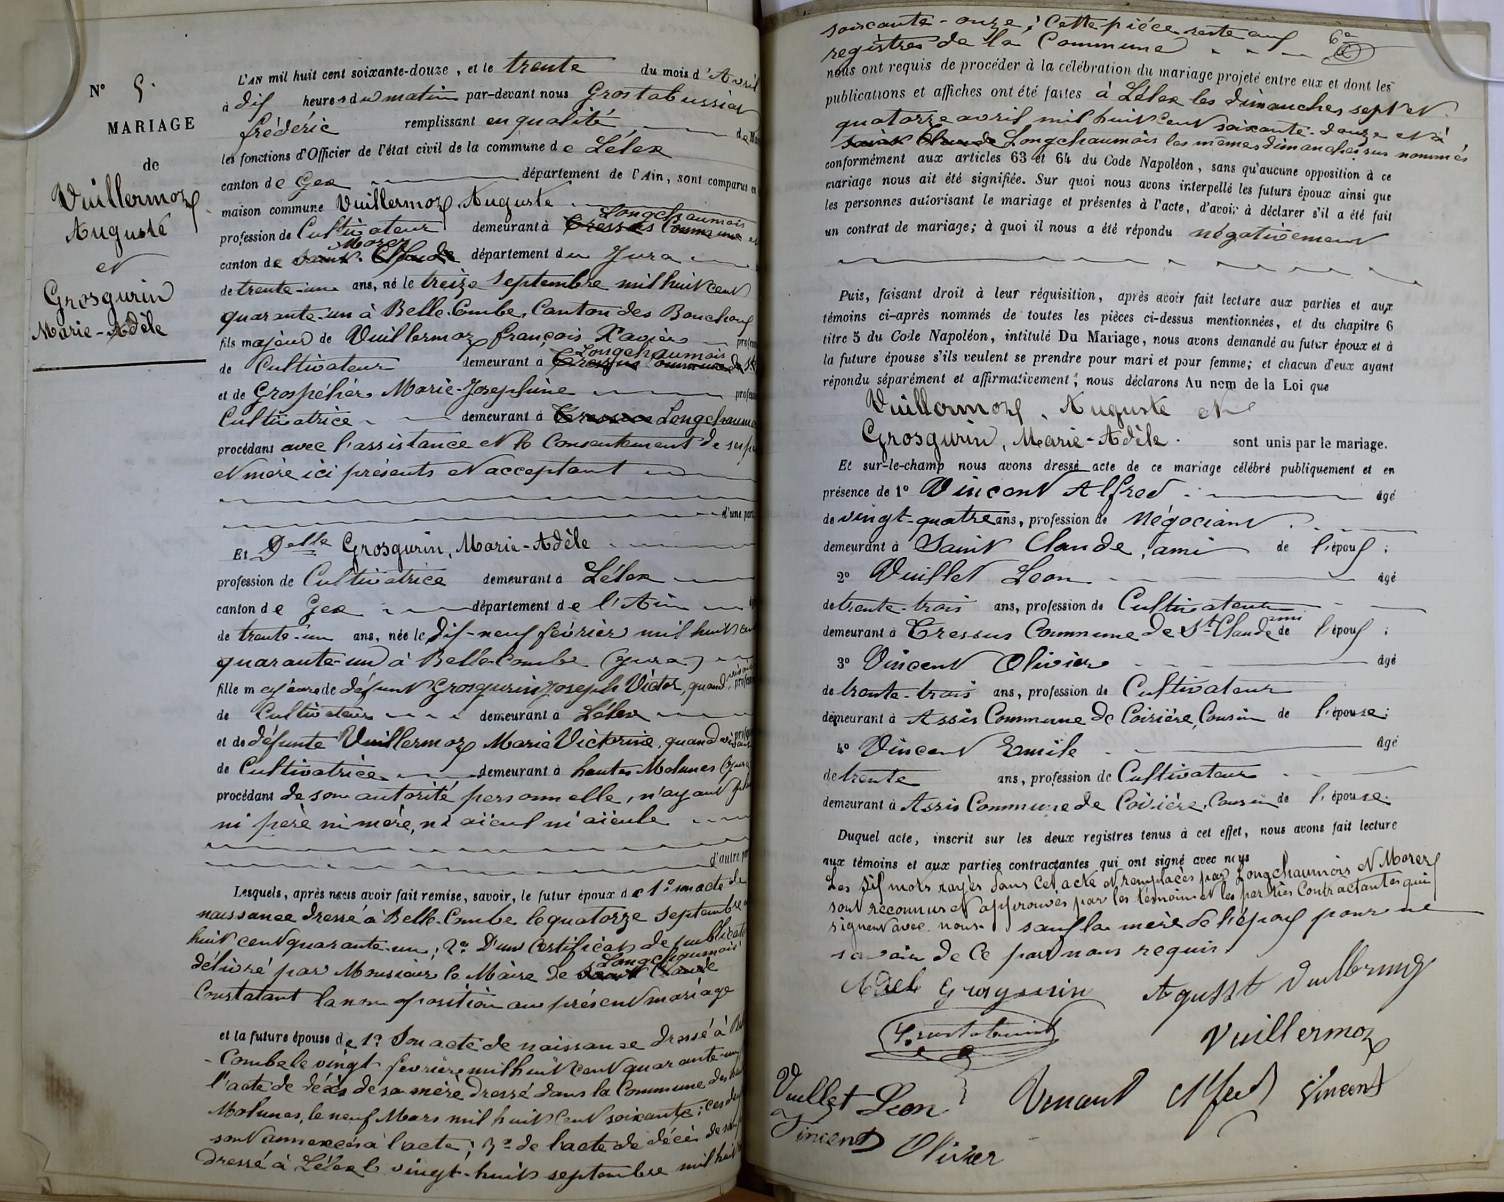 N° 5.
MARIAGE
de
Vuillermoz
Auguste
et
Grosgurin
Marie-Adèle
L'AN mil huit cent soixante-douze, et le trente du mois d'Avril
à dix heures du matin par-devant nous Grostabussiat
frédéric remplissant en qualité de
les fonctions d'Officier de l'état civil de la commune de Lélex
canton de Gex département de l'Ain, sont comparus en
maison commune Vuillermoz Auguste
profession de Cultivateur demeurant à Cressus Commune Longchaumois
canton de Saint-Claude Morez département du Jura
de trente-un ans, né le treize Septembre mil huit cent
quarante-un à Belle-Combe, Canton des Bouchoux
fils majeur de Vuillermoz françois Xavier profess
de Cultivateur demeurant à Cressus Commune de St Longchaumois
et de Grospélier Marie-Josephine profess
Cultivatrice demeurant à Cressus Longchaumois
procédant avec l'assistance et le Consentement de ses père
et mère ici présents et acceptant
d'une part
Et Delle Grosgurin, Marie-Adèle
profession de Cultivatrice demeurant à Lélex
canton de Gex département de l'Ain
de trente-un ans, née le dix-neuf février mil huit cent
quarante-un à Belle-Combe (Jura)
fille majeure de défunt Grosgurin Joseph Victor, quand vivant profess
de Cultivateur demeurant à Lélex
et de défunte Vuillermoz Marie Victorine, quand vivante
de Cultivatrice demeurant à hautes Molunes (Jura
procédant de son autorité personnelle, n'ayant plus
ni père ni mère, ni aïeul ni aïeule
d'autre part
Lesquels, après nous avoir fait remise, savoir, le futur époux de 1° son acte de
naissance dressé à Belle-Combe le quatorze septembre
huit cent quarante-un, 2° D'un Certificat de publicat
délivré par Monsieur le Maire de Saint Claude Longchaumois
Constatant la non opposition au présent mariage
et la future épouse de 1° Son acte de naissance dressé à Bel
-Combe le vingt février mil huit cent quarante-un
l'acte de décès de sa mère dressé dans la Commune des
Molunes, le neuf Mars mil huit cent soixante; ces
sont annexées à l'acte; 3° de l'acte de décès de son
dressé à Lélex le vingt-huit septembre mil huit
soixante-onze; Cette pièce reste aux 6e
registres de la Commune
nous ont requis de procéder à la célébration du mariage projeté entre eux et dont les
publications et affiches ont été faites à Lélex les dimanches sept et
quatorze avril mil huit cent soixante-douze et à
Saint Claude Longchaumois les mêmes dimanches sus nommés
conformément aux articles 63 et 64 du Code Napoléon, sans qu'aucune opposition à ce
mariage nous ait été signifiée. Sur quoi nous avons interpellé les futurs époux ainsi que
les personnes autorisant le mariage et présentes à l'acte, d'avoir à déclarer s'il a été fait
un contrat de mariage; à quoi il nous a été répondu négativement
Puis, faisant droit à leur réquisition, après avoir fait lecture aux parties et aux
témoins ci-après nommés de toutes les pièces ci-dessus mentionnées, et du chapitre 6
titre 5 du Code Napoléon, intitulé Du Mariage, nous avons demandé au futur époux et à
la future épouse s'ils veulent se prendre pour mari et pour femme; et chacun d'eux ayant
répondu séparément et affirmativement, nous déclarons Au nom de la Loi que
Vuillermoz, Auguste et
Grosgurin, Marie-Adèle. sont unis par le mariage.
Et sur-le-champ nous avons dressé acte de ce mariage célébré publiquement et en
présence de 1° Vincent Alfred âgé
de vingt-quatre ans, profession de Négociant
demeurant à Saint Claude, ami de l'époux;
2° Vuillet Leon âgé
de trente-trois ans, profession de Cultivateur
demeurant à Cressus Commune de St Claude ami de l'époux;
3° Vincent Olivier âgé
de trente-trois ans, profession de Cultivateur
demeurant à Assis Commune de Coirière, Cousin de l'épouse;
4° Vincent Emile âgé
de trente ans, profession de Cultivateur
demeurant à Assis Commune de Coirière, Cousin de l'épouse
Duquel acte, inscrit sur les deux registres tenus à cet effet, nous avons fait lecture
aux témoins et aux parties contractantes qui ont signé avec nous
Les dix mots rayés dans cet acte et remplacés par Longchaumois et Morez
sont reconnus et approuvés par les témoins et les parties Contractantes qui
signent avec nous sauf la mère de l'époux pour ne
savoir de ce par nous requis
Adel Grosgurin Agusst Vuillermoz
Vuillermoz
Vuillet Leon Vincent Alfred Vincent
Vincent Olivier